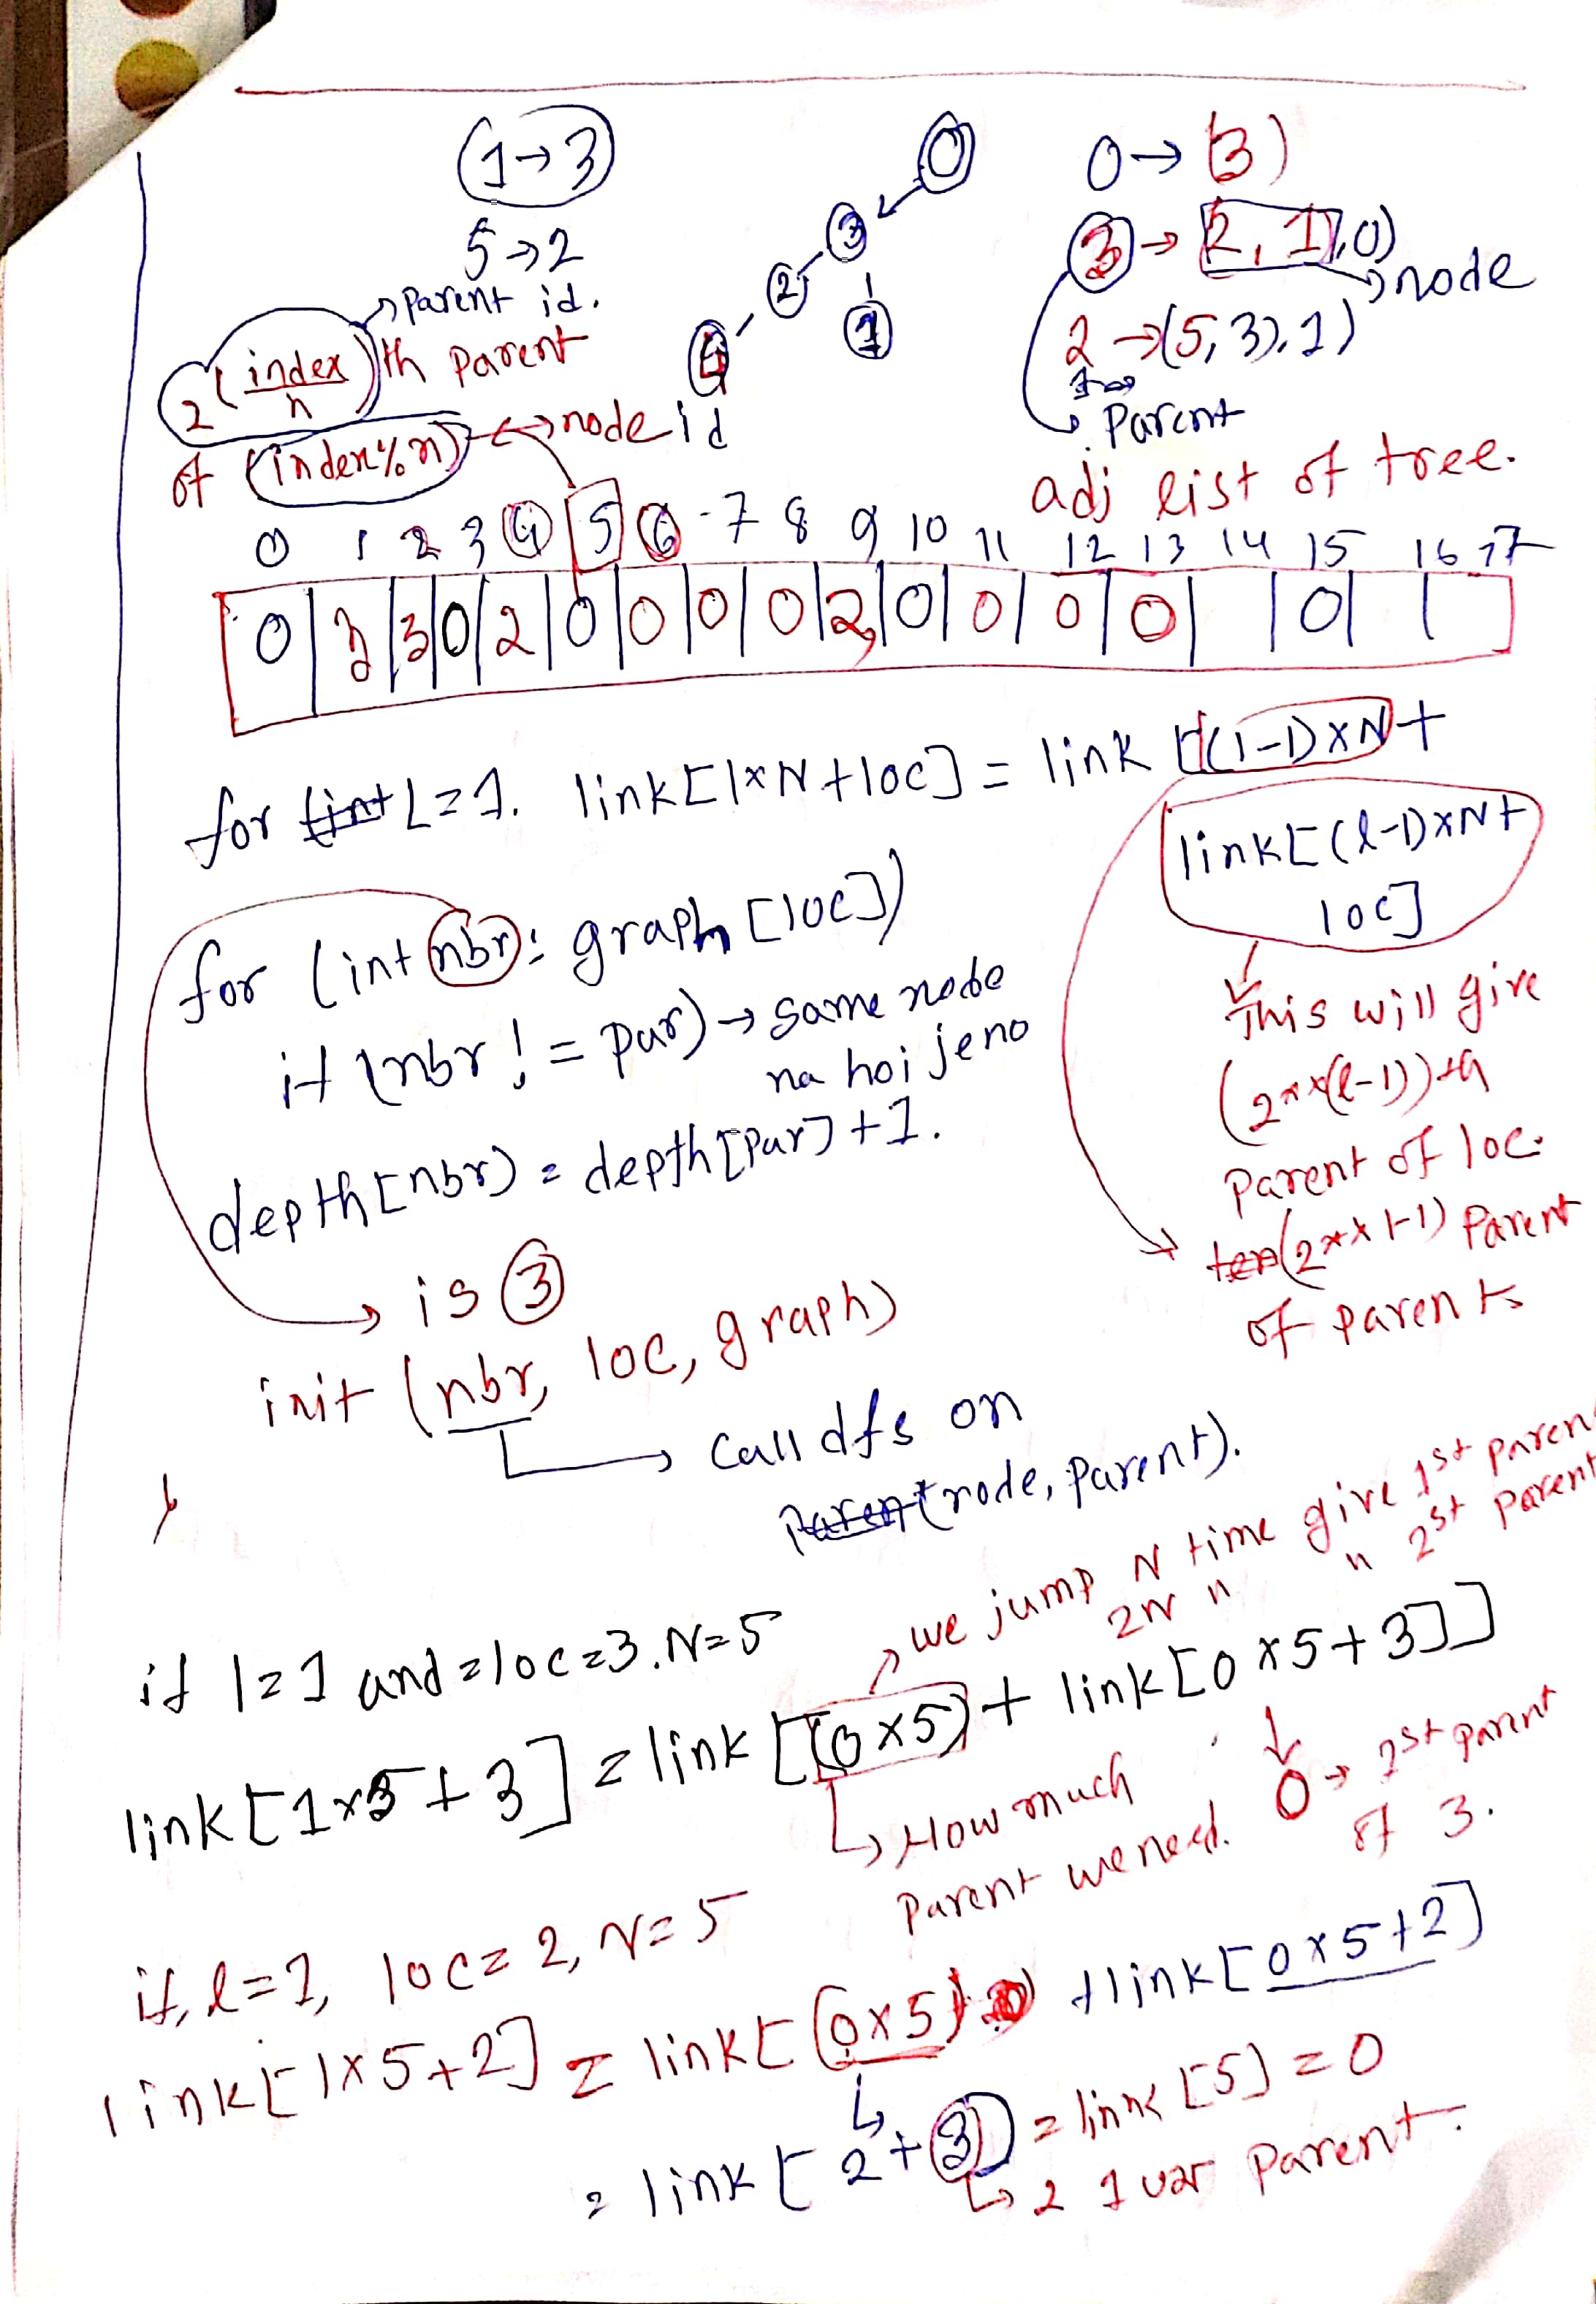 (1→3)
5→2
→ Parent id.
2 (index/n) th parent
of (index%n) ↔ node id
0
3
2
1
4
0 → (3)
3 → (2, 1), 0)
→ node
2 → (5, 3), 1)
Parent
adj list of tree.
0 1 2 3 4 5 6 - 7 8 9 10 11 12 13 14 15 16 17
0 | 3 | 3 | 0 | 2 | 0 | 0 | 0 | 0 | 2 | 0 | 0 | 0 | 0 | | 0 | |
for int L=1. link[l×N+loc] = link [(l-1)×N+
link[(l-1)×N+
loc]
This will give
(2**(l-1))th
Parent of loc.
(2**l-1) Parent
of parents
for (int nbr: graph [loc])
if (nbr != par) → same node
na hoi jeno
depth[nbr] = depth[par] + 1.
→ is 3
init (nbr, loc, graph)
→ call dfs on
Parent (node, parent).
}
we jump N time give 1st paren
2N " " 2st parent
if l=1 and =loc=3. N=5
link [1×5+3] = link [(0×5) + link [0×5+3]]
→ How much
Parent we need.
0 → 1st parent
of 3.
if, l=1, loc=2, N=5
link[1×5+2] = link[(0×5) + link[0×5+2]
= link [2+3] = link [5] = 0
→ 2 1 var Parent.